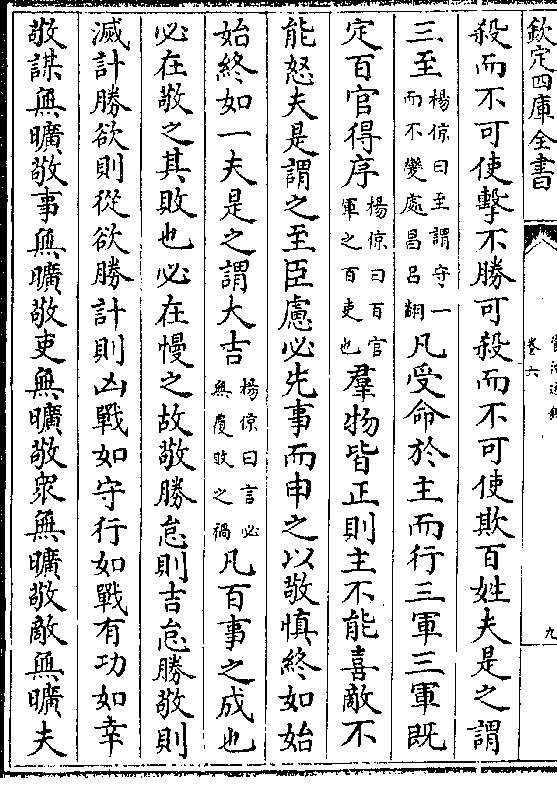 欽定四庫全書
卷六
九
殺而不可使擊不勝可殺而不可使欺百姓夫是之謂
三至楊倞曰至謂守一而不變處昌呂翻凡受命於主而行三軍三軍既
定百官得序楊倞曰百官軍之百吏也羣物皆正則主不能喜敵不
能怒夫是謂之至臣慮必先事而申之以敬慎終如始
始終如一夫是之謂大吉楊倞曰言必無覆敗之禍凡百事之成也
必在敬之其敗也必在慢之故敬勝怠則吉怠勝敬則
滅計勝欲則從欲勝計則凶戰如守行如戰有功如幸
敬謀無曠敬事無曠敬吏無曠敬衆無曠敬敵無曠夫